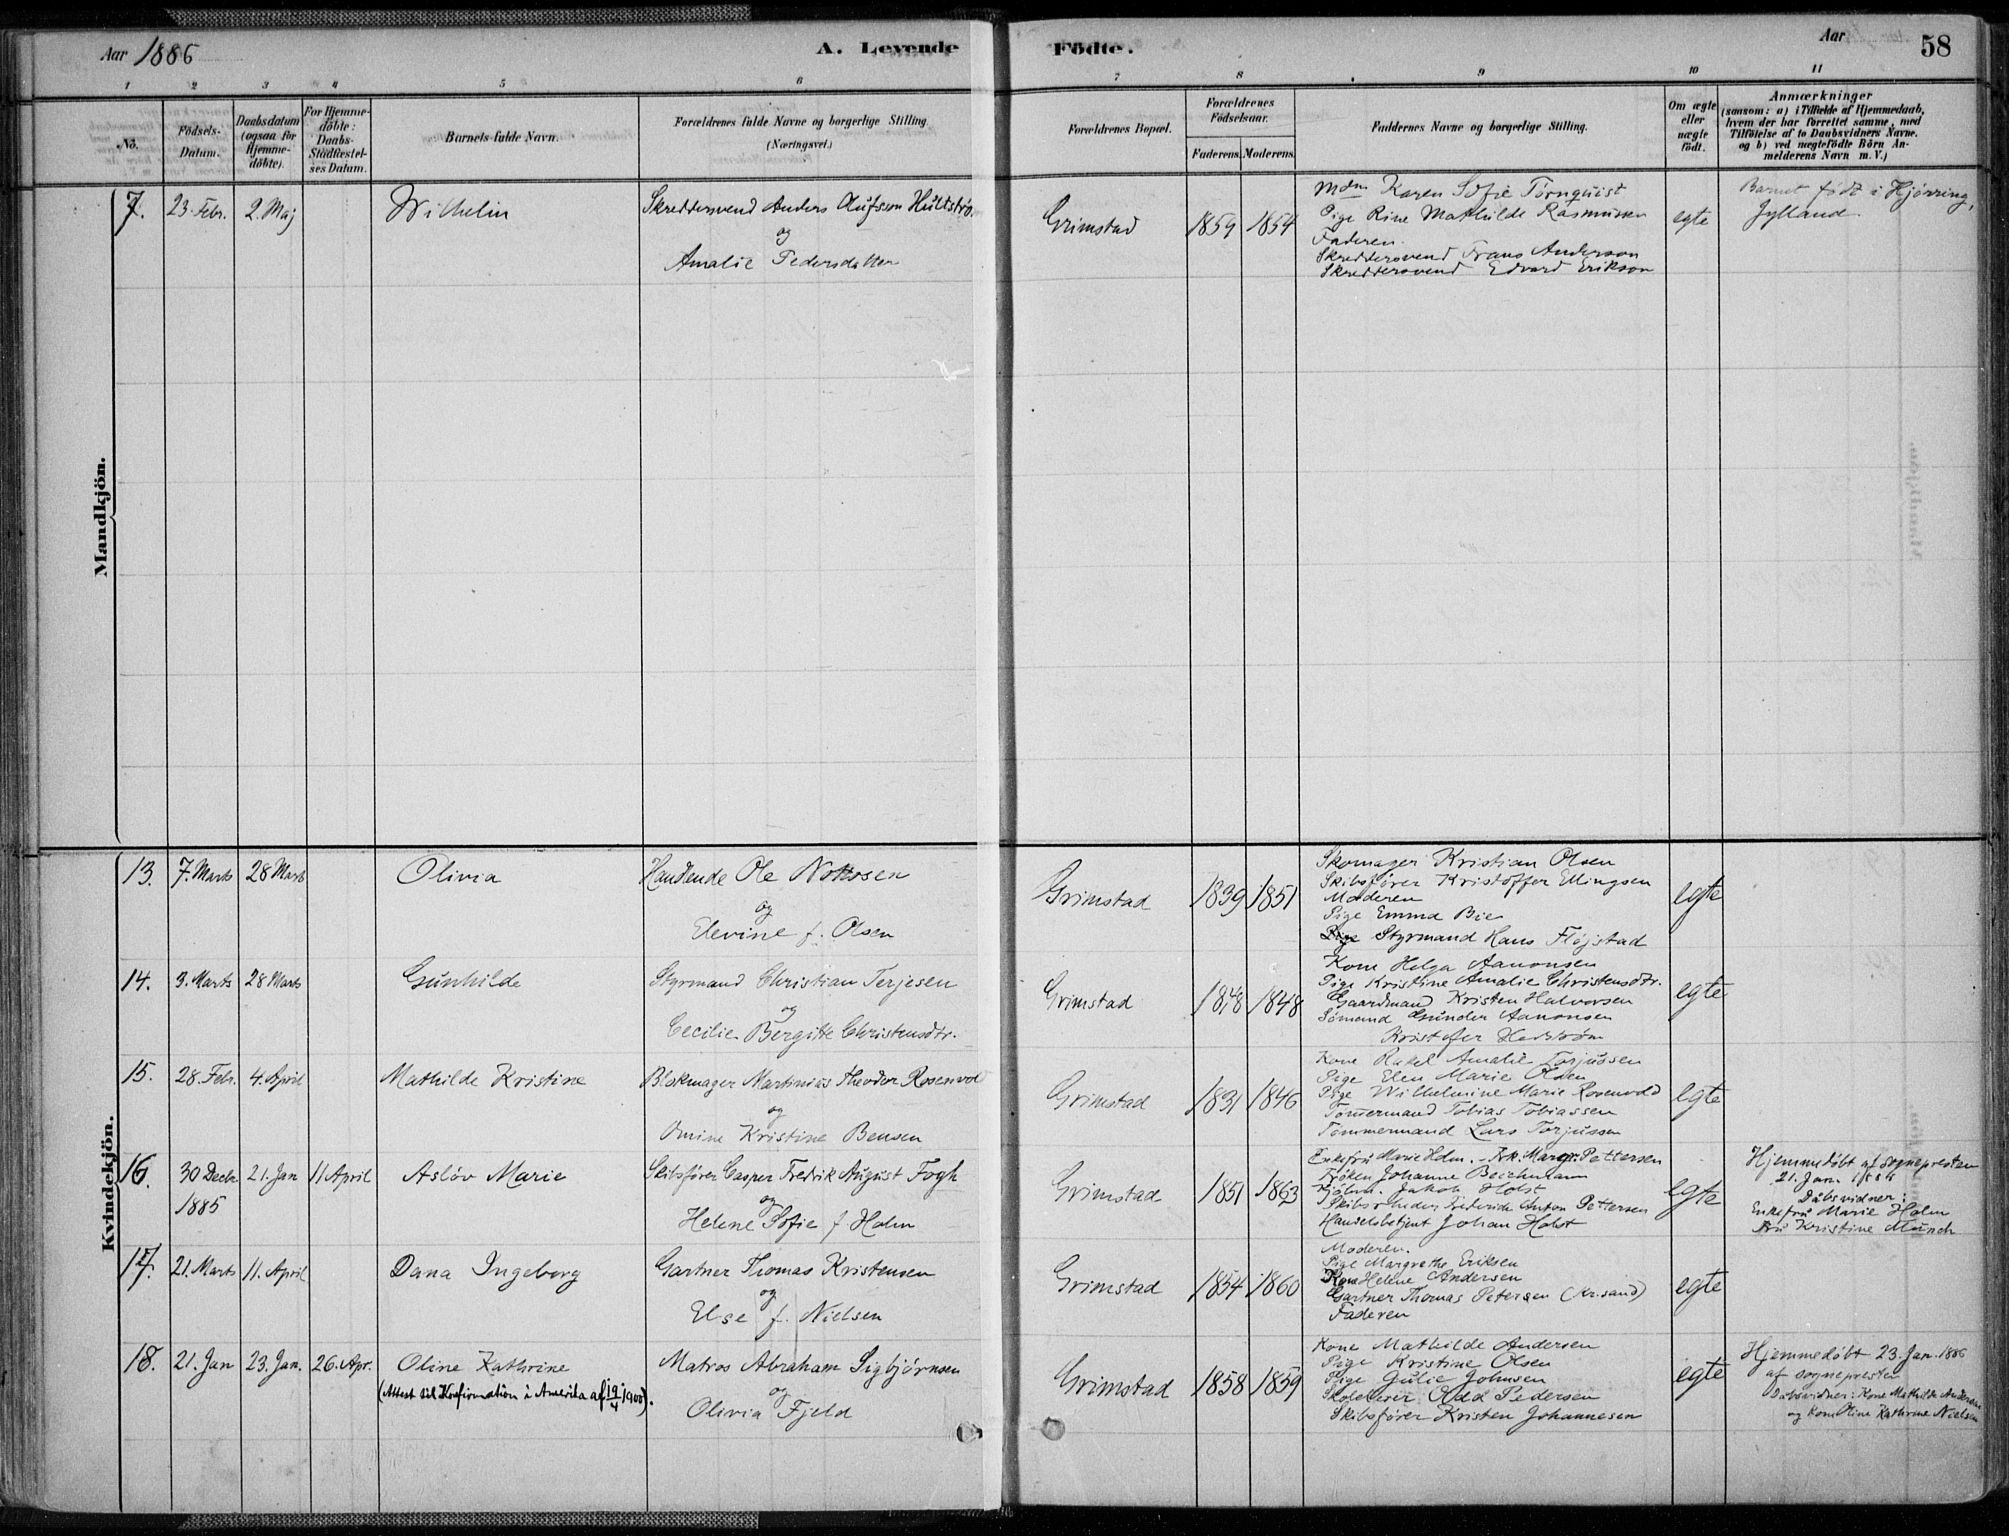 Aar 1886
A. Levende Födte.
Aar
58
1 2 3 4 5 6 7 8 9 10 11
No.
Födsels-Datum.
Daabsdatum (ogsaa for Hjemme-döbte).
For Hjemme-döbte: Daabs-Stadfæstel-ses Datum.
Barnets fulde Navn.
Forældrenes fulde Navne og borgerlige Stilling (Næringsvei.)
Forældrenes Bopæl.
Forældrenes Födselsaar.
Faderens. Moderens.
Faddernes Navne og borgerlige Stilling.
Om ægte eller uægte födt.
Anmærkninger
(saasom: a) i Tilfælde af Hjemmedaab, hvem der har forrettet samme, med Tilföielse af to Daabsvidners Navne. og b) ved uægtefödte Börn An-melderens Navn m. V.)
Mandkjön.
7. 23. Febr. 2. Maj
Wilhelm
Skreddersvend Anders Olufsson Hultstrø
og
Amalie Pedersdatter
Grimstad
1859 1854
Mdm Karen Sofie Törnquist
Pige Rine Mathilde Rasmussen
Faderen.
Skreddersvend Frans Anderson
Skreddersvend Edvard Erikson
egte
Barnet født i Hjørring,
Jylland
Kvindekjön.
13. 7. Marts 28 Marts
Olivia
Handlende Ole
og
Elevine f. Olsen
Grimstad
1839 1851
Skomager Kristian Olsen
Skibsfører Kristoffer Ellingsen
Moderen
Pige Emma Bie
Styrmand Hans Fløjstad
egte
14. 9. Marts 28 Marts
Gunhilde
Styrmand Christian Terjesen
og
Cecilie Bergitte Christensdtr.
Grimstad
1848 1848
Kone Helga Aanonsen
Pige Kristine Amalie Christensdtr.
Gaardmand Kristen Halvorsen
Sømand Gunder Aanonsen
Kristofer Hedstrøm
egte
15. 28. Febr. 4. April
Mathilde Kristine
Blokmager Martinius Theodor Rosenvol
og
Omine Kristine Bensen
Grimstad
1831 1846
Kone Rakel Amalie Torjussen
Pige Elen Marie Olsen
Pige Wilhelmine Marie Rosenvold
Tømmermand Tobias Tobiassen
Tømmermand Lars Torjussen
egte
16. 30 Decbr. 1885 21. Jan 11 April
Asløv Marie
Skibsfører Casper Fredrik August Fogh
og
Helene Sofie f. Holm
Grimstad
1851 1863
Enkefru Marie Holm. - Frk. Margr. Pettersen
Frøken Johanne Beichmann
Jakob Holst
Skibsreder Frederich Anton Pettersen
Handelsbetjent Johan Holst
egte
Hjemmedøbt af sognepresten
21. Jan. 1886
Dåbsvidner:
Enkefru Marie Holm
Fru Kristine Munch
17. 21. Marts 11. April
Dana Ingeborg
Gartner Thomas Kristensen
og
Else f. Nielsen
Grimstad
1854 1860
Moderen.
Pige Margrethe Eriksen
Kone Helene Andersen
Gartner Thomas Petersen (Kr.sand)
Faderen
egte
18. 21. Jan 23. Jan. 26. Apr.
Oline Kathrine
(Attest til Konfirmation i Amerika af 19/4 1900).
Matros Abraham Sigbjørnsen
og
Olivia Fjeld
Grimstad
1858 1859
Kone Mathilde Andersen
Pige Kristine Olsen
Pige Gulie Johnsen
Skoleelev Odd Pedersen
Skibsfører Kristen Johannesen
egte
Hjemmedøbt 23. Jan. 1886
af sognepresten
Dåbsvidner: Kone Mathilde Andersen
og Kone Oline Kathrine Nielsen